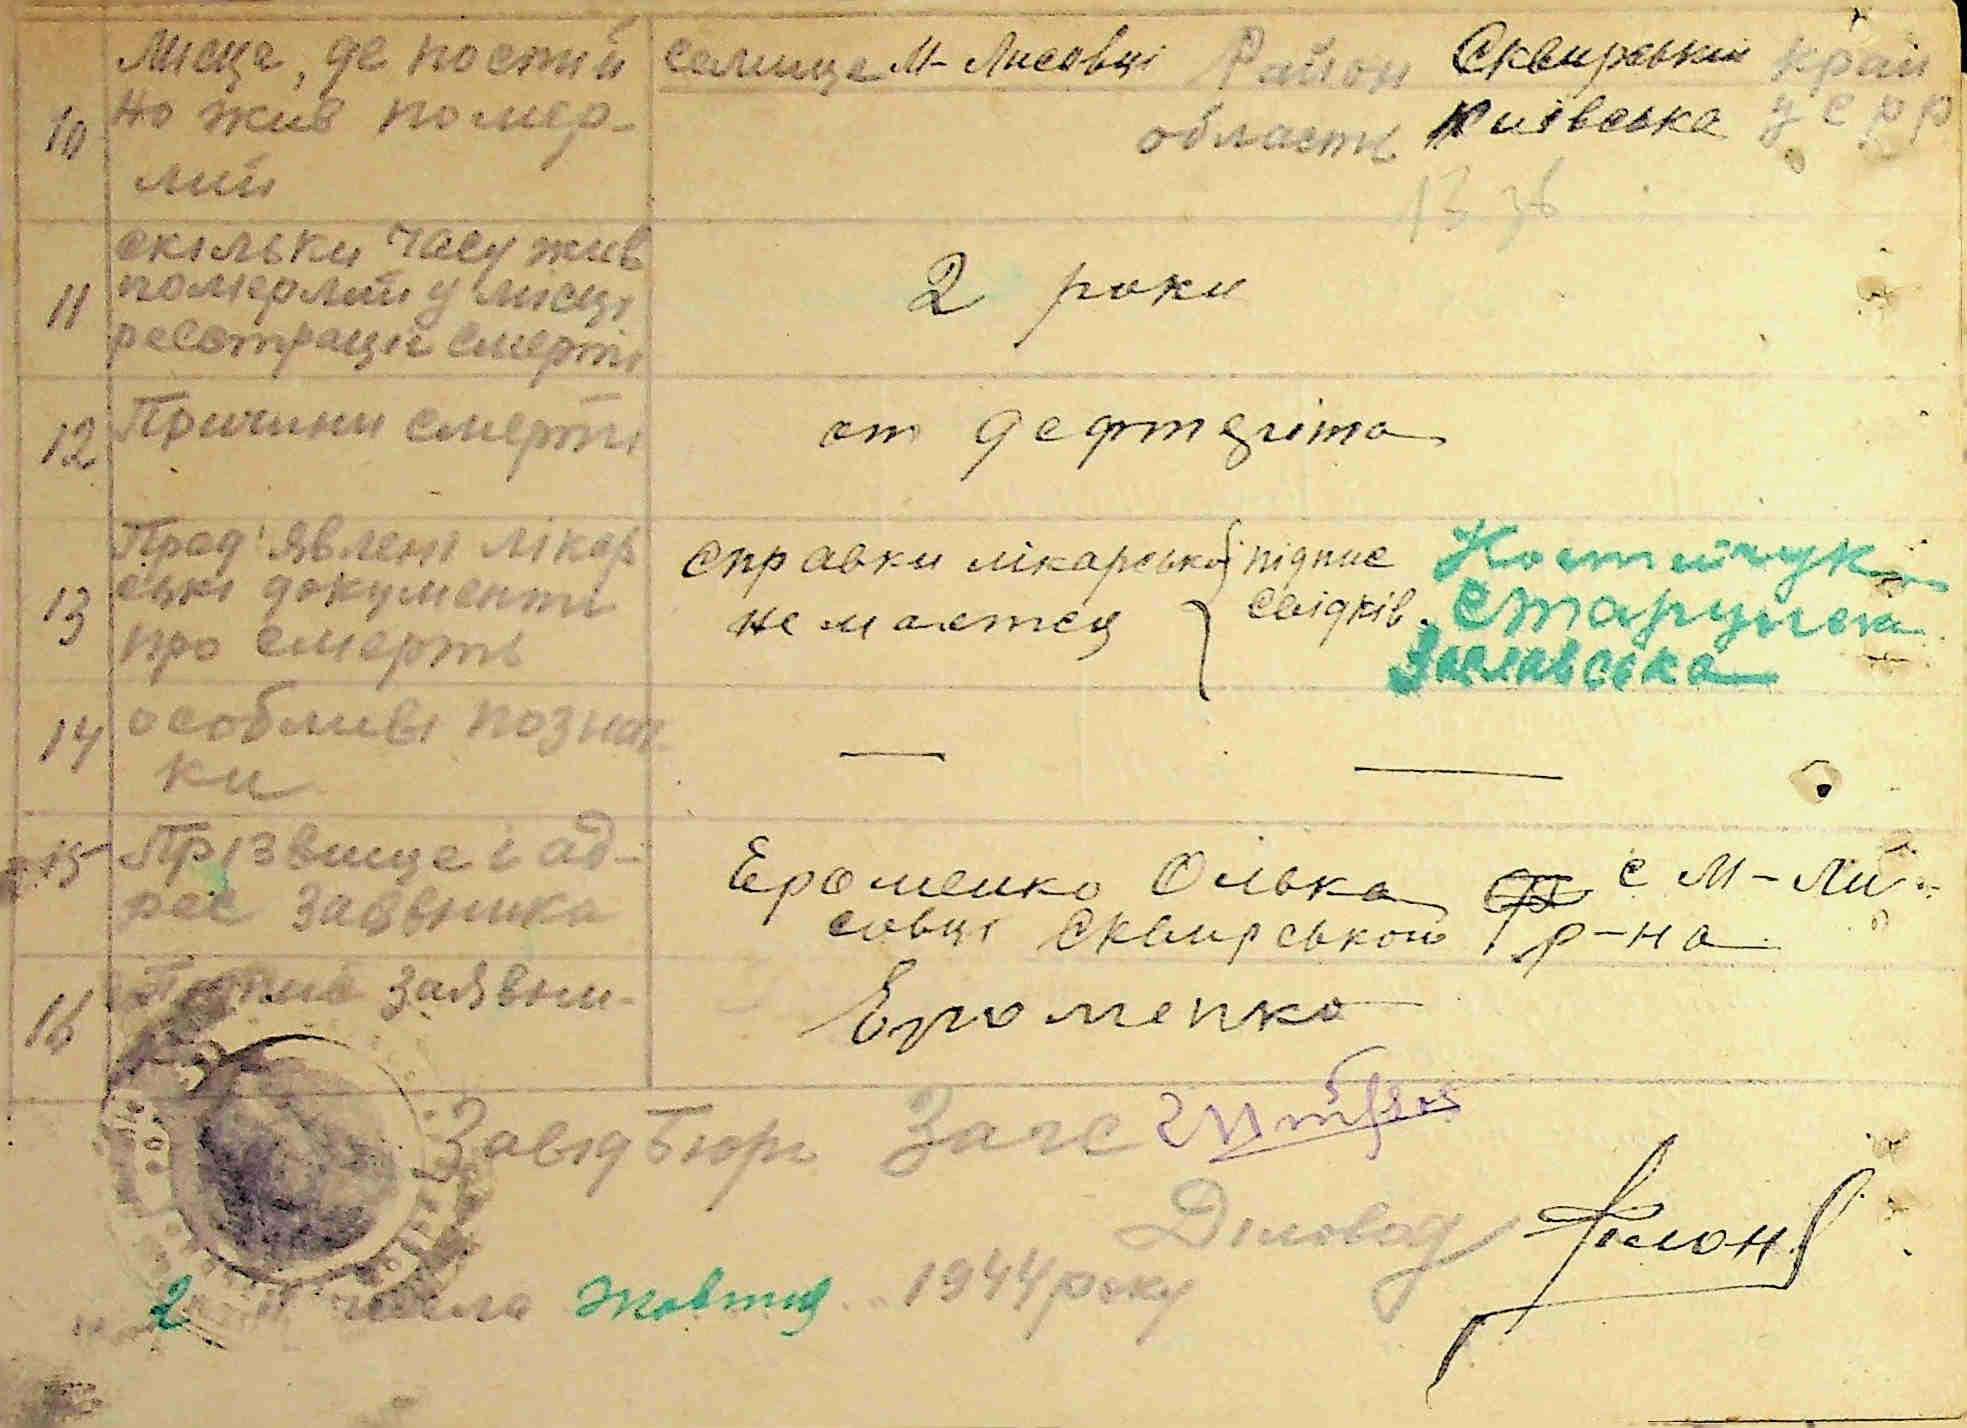 10 Місця, де постій но жив помер- лий
селище М-Лисовці Район Сквирський край
область Київська УСРР
11 скільки часу жив померлий у місці реєстрації смерті
2 роки
12 Причини смерті
от дефтеріта
13 Пред'явлені лікар ські документи про смерть
Справки лікарської немаєтся
підпис свідків.
Костийчук
Старунска
Заславська
14 особливі познат- ки
— —
15 Прізвище і ад- рес заявника
Ероменко Олька с М-Ли-
совці Сквирського р-на
16 Підпис заявни-
Ероменко
Завід Бюро Загс
Діловод
2 числа жовтня 1944 року